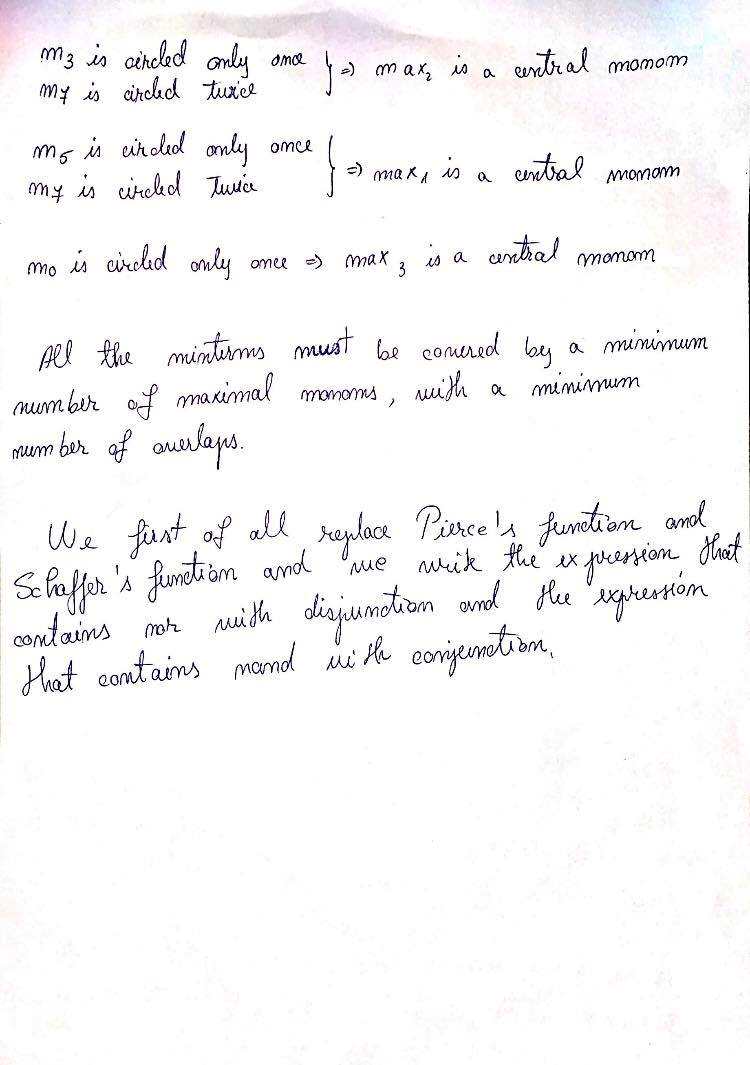 m3 is circled only once } => max2 is a central monom
m7 is circled twice
m5 is circled only once } => max1 is a central monom
m7 is circled Twice
m0 is circled only once => max3 is a central monom
All the minterms must be covered by a minimum
number of maximal monoms, with a minimum
number of overlaps.
We first of all replace Pierce's function and
Schaffer's function and we write the expression that
contains nor with disjunction and the expression
that contains nand with conjunction.